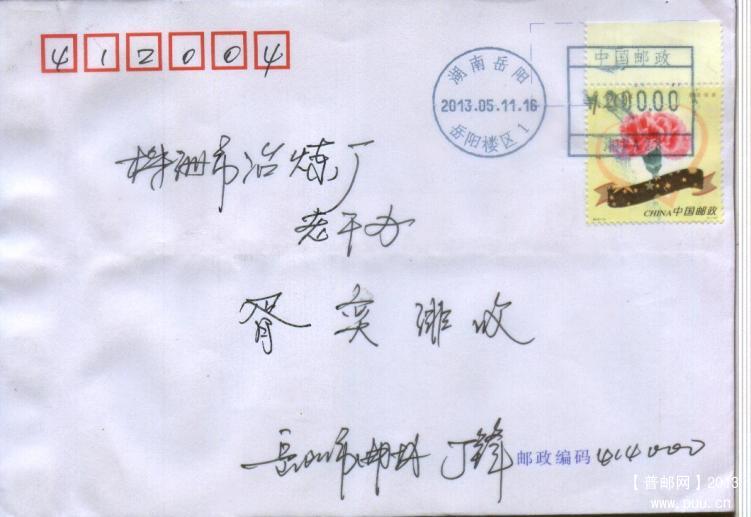 412004
湖南岳阳
2013.05.11.16
岳阳楼区1
中国邮政
¥1200.00
CHINA中国邮政
株洲市冶炼厂
老干办
收
岳阳市
丁锋 邮政编码 414000
【普邮网】2013
www.puu.cn